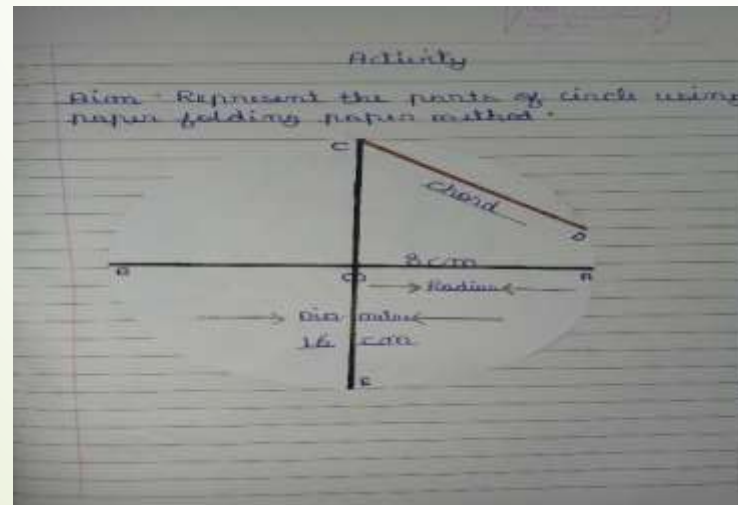 Activity
Aim Represent the parts of circle using
paper folding paper method.
C
Chord
D
8 cm
O
Radius
Diameter
16 cm
E